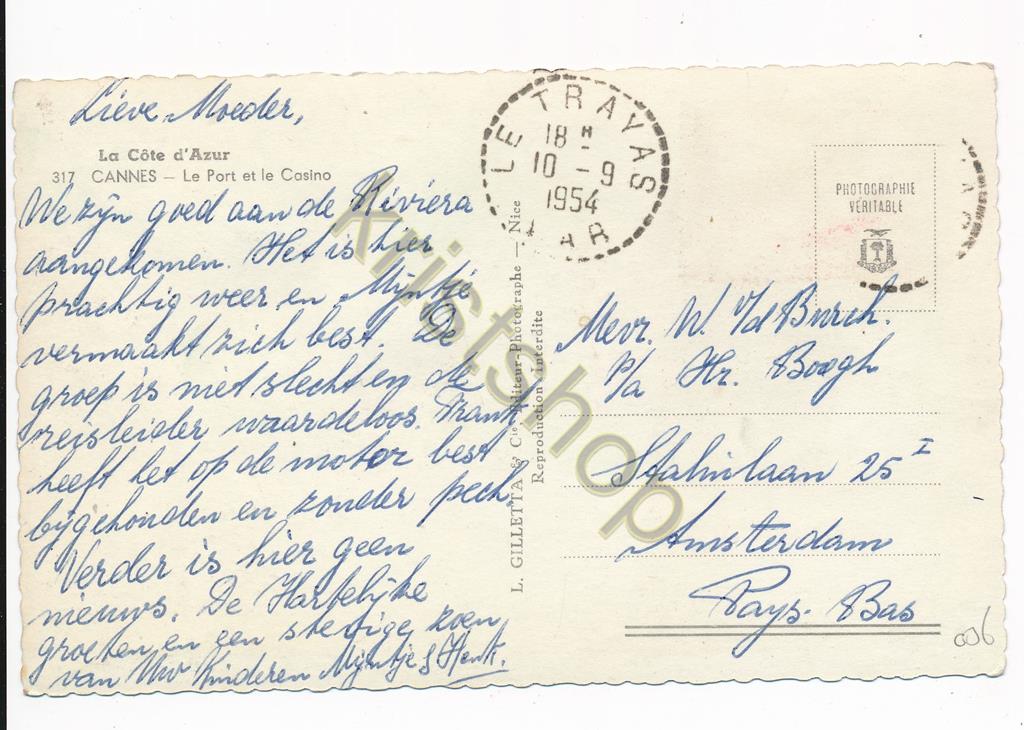 Lieve Moeder,
La Côte d'Azur
317 CANNES — Le Port et le Casino
We zijn goed aan de Riviera
aangekomen. Het is hier
prachtig weer en Mijntje
vermaakt zich best. De
groep is niet slecht en de
reisleider waardeloos. Frank
heeft het op de motor best
bijgehouden en zonder pech.
Verder is hier geen
nieuws. De Hartelijke
groeten en een stevige zoen
van Uw Kinderen Mijntje & Henk.
L. GILLETTA & Cie Editeur-Photographe — Nice
Reproduction Interdite
LE TRAYAS
18 H
10 - 9
1954
VAR
PHOTOGRAPHIE
VÉRITABLE
Mevr. W. v/d Burch.
P/a Hr. Boogh
Stalinlaan 25 I
Amsterdam
Pays-Bas
006
krijstshop